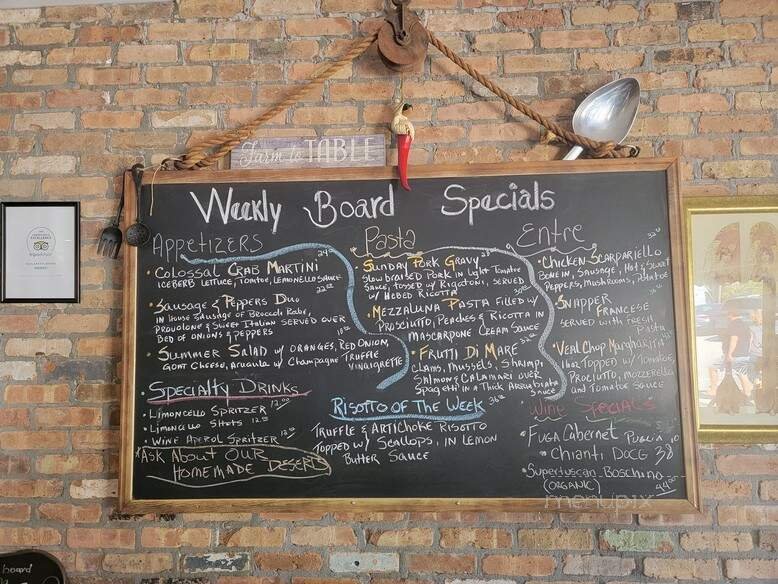 Farm to TABLE
Weekly Board Specials
Appetizers
Colossal Crab Martini 24.00
Iceberg Lettuce, Tomatoe, Lemonello Sauce
Sausage & Peppers Duo 22.00
In House Sausage of Broccoli Rabe,
Provolone & Sweet Italian Served over
Bed of Onions & Peppers
Summer Salad w/ Oranges, Red Onion,
Goat Cheese, Arugula w/ Champagne Truffle
Vinaigrette
Specialty Drinks
Limoncello Spritzer 12.00
Limoncello Shots 12.00
Wine Aperol Spritzer
*Ask About Our
Homemade Deserts
Pasta
Sunday Pork Gravy
Slow Braised Pork in Light Tomatoe
Sauce, tossed w/ Rigatoni, served
w/ Herbed Ricotta
Mezzaluna Pasta Filled w/
Prosciutto, Peaches & Ricotta in
Mascarpone Cream Sauce
Frutti Di Mare
Clams, Mussels, Shrimp,
Salmon & Calamari over
Spaghetti in a Thick Arrabbiata
Sauce
Risotto of The Week
Truffle & Artichoke Risotto
Topped w/ Scallops, in Lemon
Butter Sauce
Entre
Chicken Scarpariello
Bone in, Sausage, Hot & Sweet
Peppers, Mushrooms, Potatoe
Snapper
Francese
Served with Fresh
Pasta
Veal Chop Margharita
Topped w/ Tomatoe,
Prociutto, Mozzerella
and Tomatoe Sauce
Wine Specials
Fuga Cabernet Puglia
Chianti DOCG 38
Supertuscan Boschino
(Organic)
menupix
board